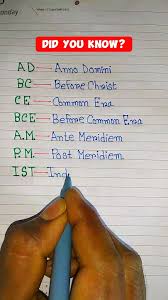 DID YOU KNOW?
AD - Anno Domini
BC - Before Christ
CE - Common Era
BCE - Before Common Era
A.M. - Ante Meridiem
P.M. - Post Meridiem
IST - Ind